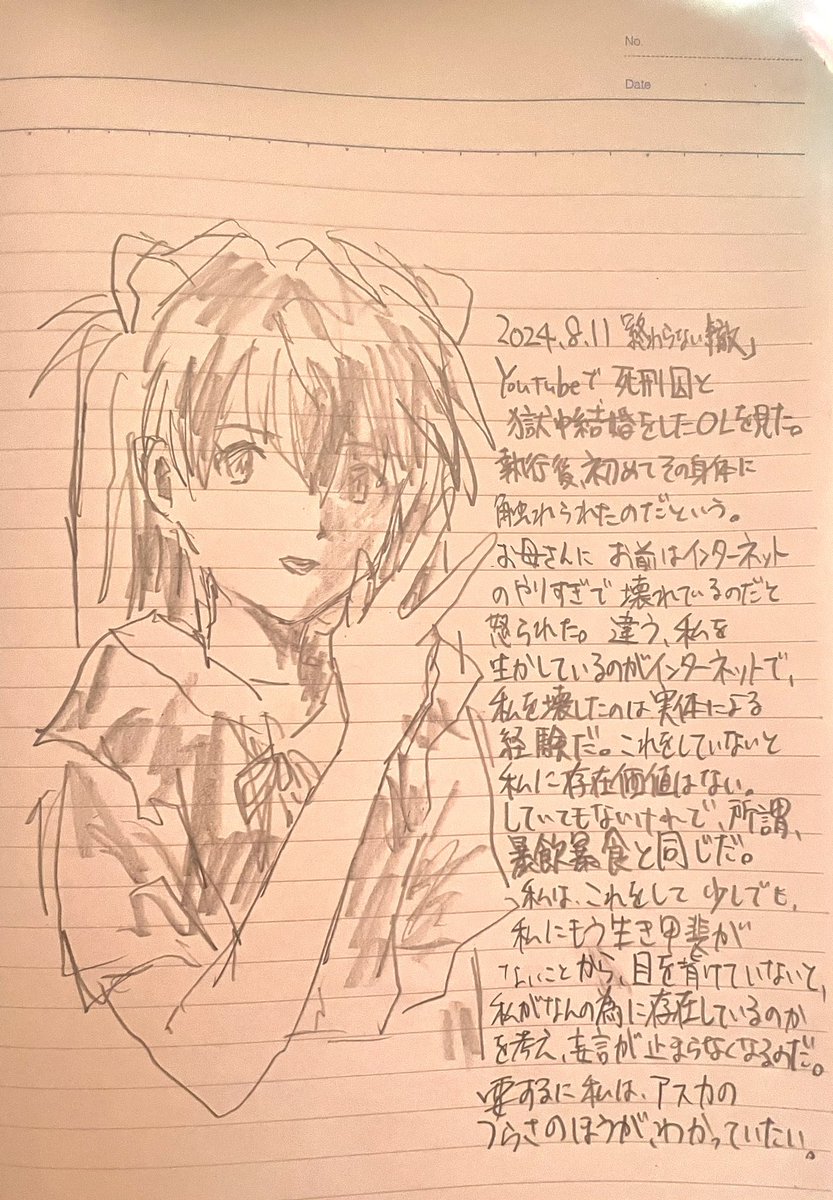 No.
Date
2024.8.11「終わらない轍」
Youtubeで 死刑囚と
獄中結婚をしたOLを見た。
執行後、初めてその身体に
触れられたのだという。
お母さんに お前はインターネット
のやりすぎで 壊れているのだと
怒られた。違う、私を
生かしているのがインターネットで、
私を壊したのは実体による
経験だ。これをしていないと
私に存在価値はない。
していてもないけれで、所謂、
暴飲暴食と同じだ。
私は、これをして 少しでも、
私にもう生き甲斐が
ないことから、目を背けていないと、
私がなんの為に存在しているのか
を考え、妄言が止まらなくなるのだ。
要するに私は、アスカの
つらさのほうが、わかっていたい。